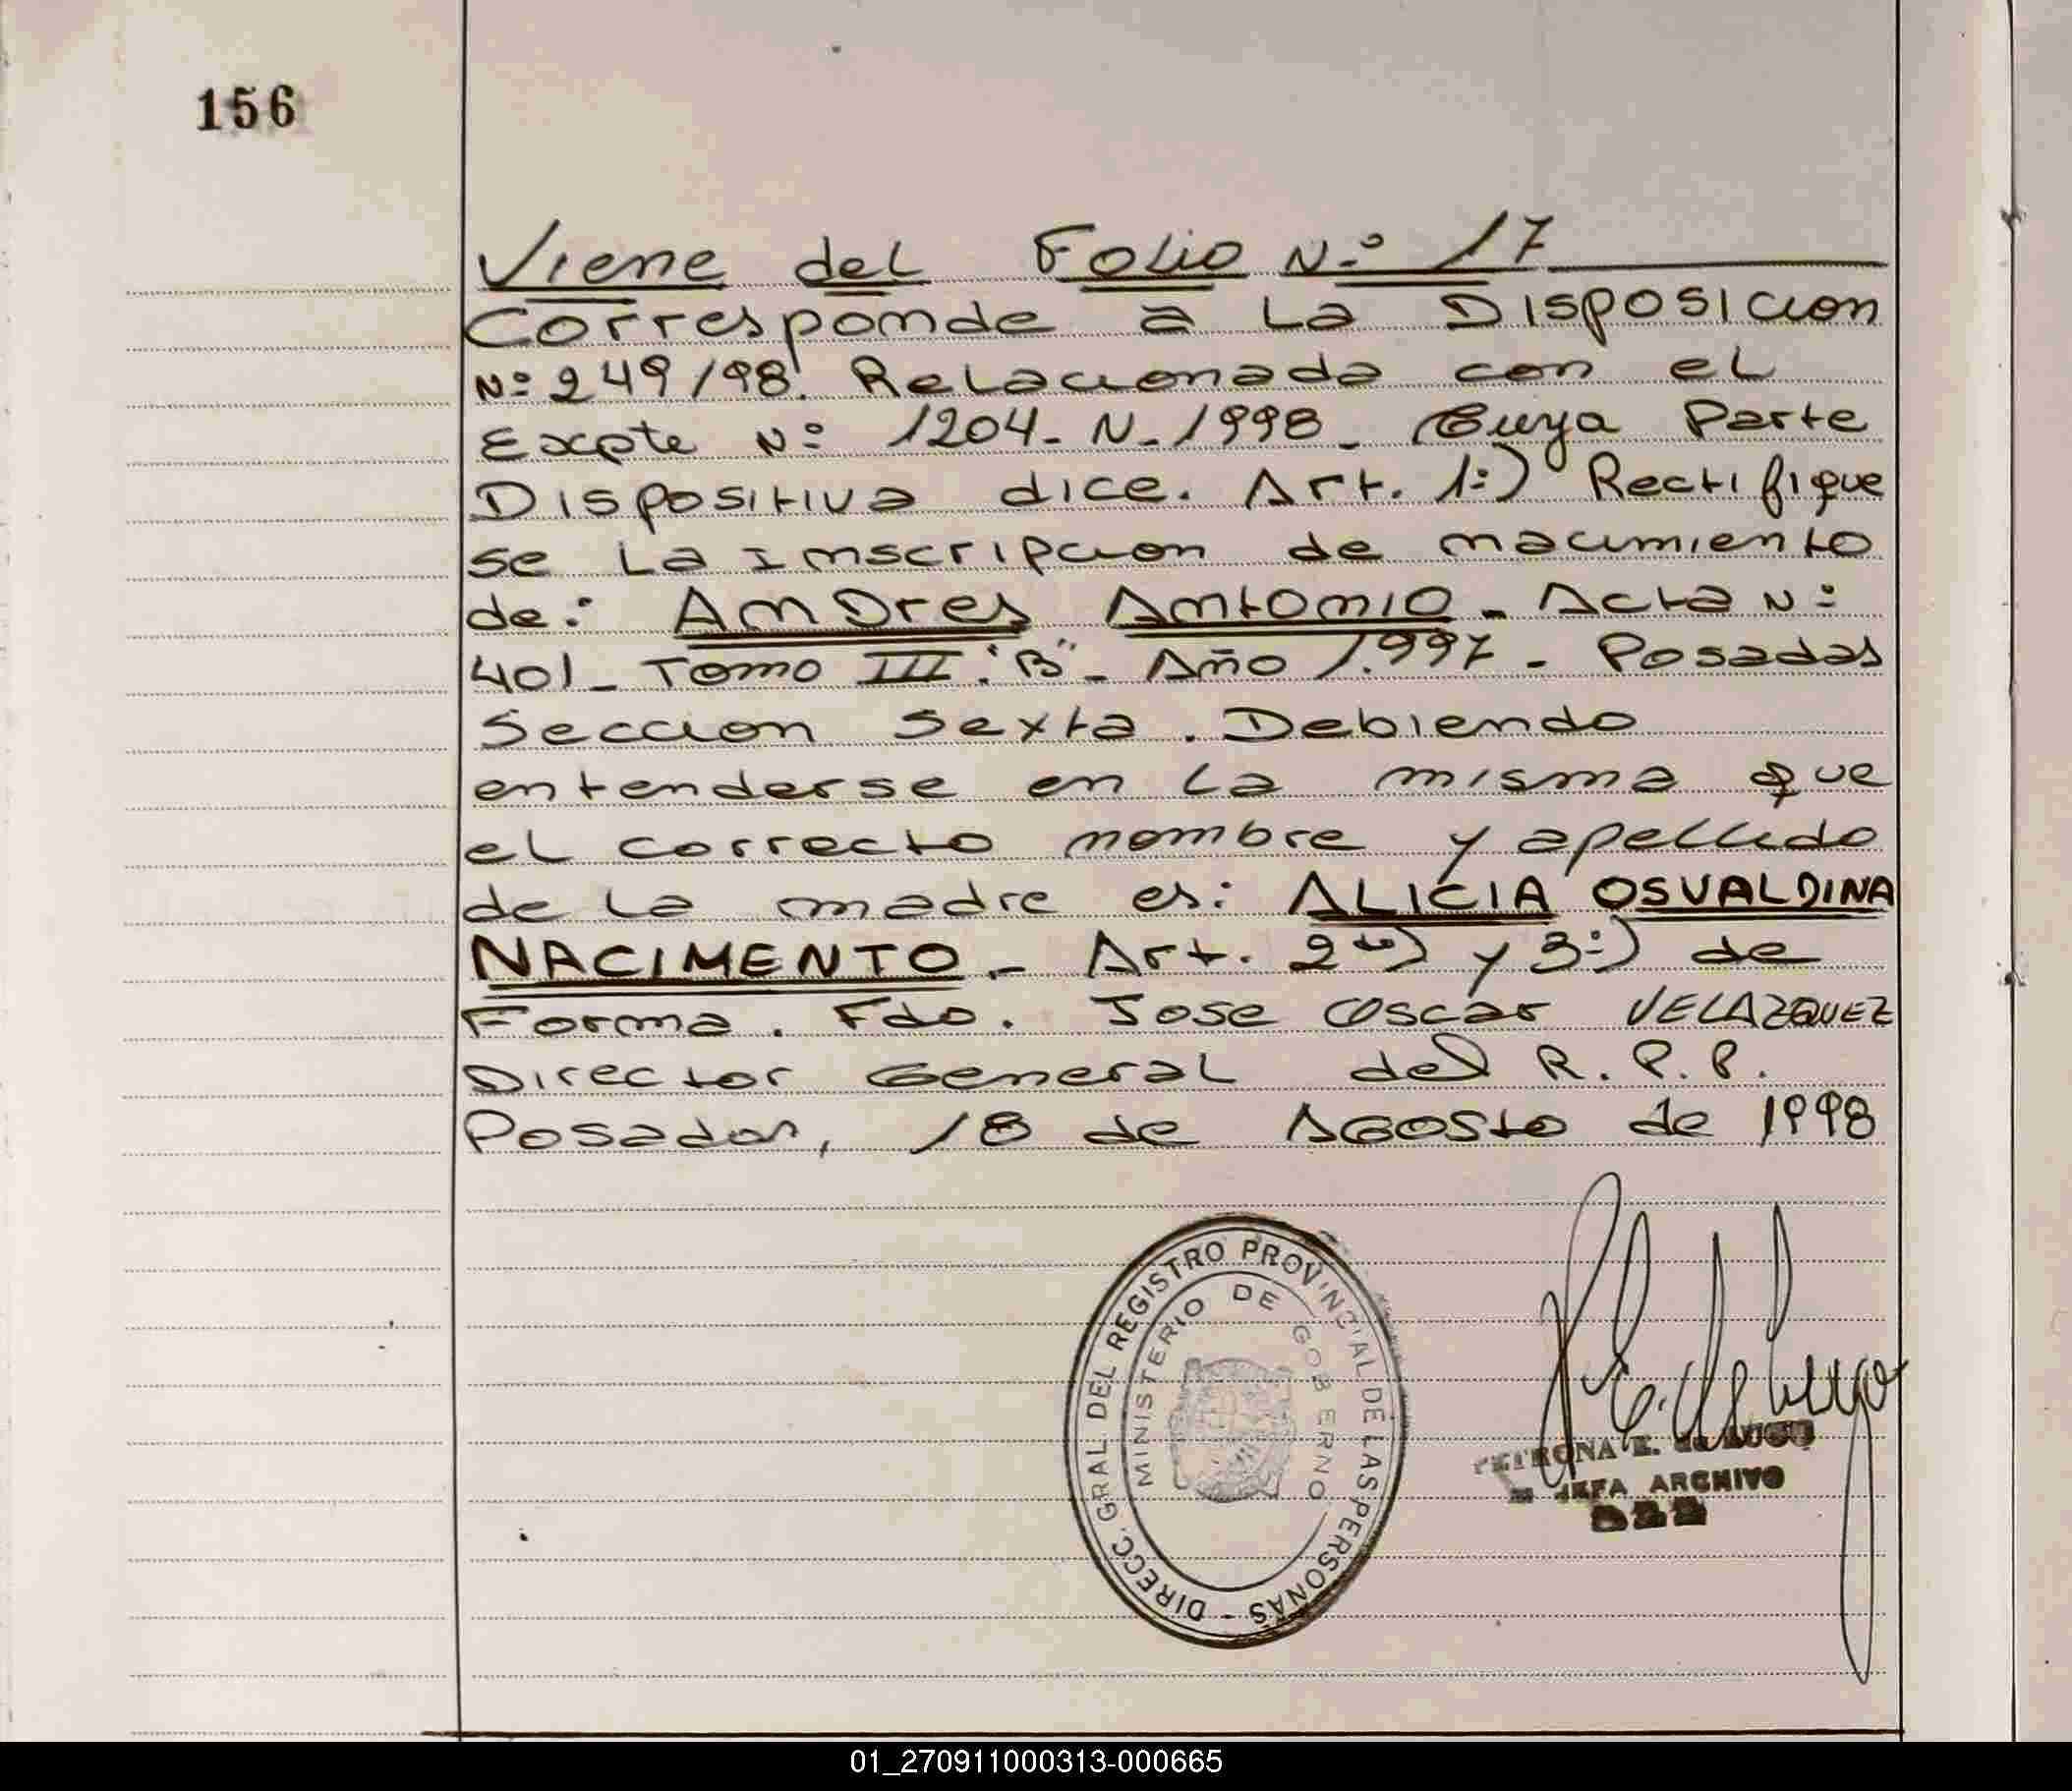 156
Viene del Folio N.º 17
Corresponde a La Disposicion
Nº 249/98. Relacionada con el
Expte Nº 1204-N-1998- Cuya Parte
Dispositiva dice. Art. 1º) Rectifique
se La Inscripcion de nacimiento
de: Andres Antonio - Acta Nº
401- Tomo III "B" - Año 1.997 - Posadas
Seccion Sexta. Debiendo
entenderse en La misma que
el correcto nombre y apellido
de La madre es: ALICIA OSVALDINA
NACIMENTO.- Art. 2do) y 3º) de
Forma. Fdo. Jose Oscar VELAZQUEZ
Director General del R. P. P.
Posadas, 18 de Agosto de 1998
DIRECC. GRAL DEL REGISTRO PROVINCIAL DE LAS PERSONAS -
MINISTERIO DE GOBIERNO
PETRONA E. de LUGO
JEFA ARCHIVO
01_270911000313-000665